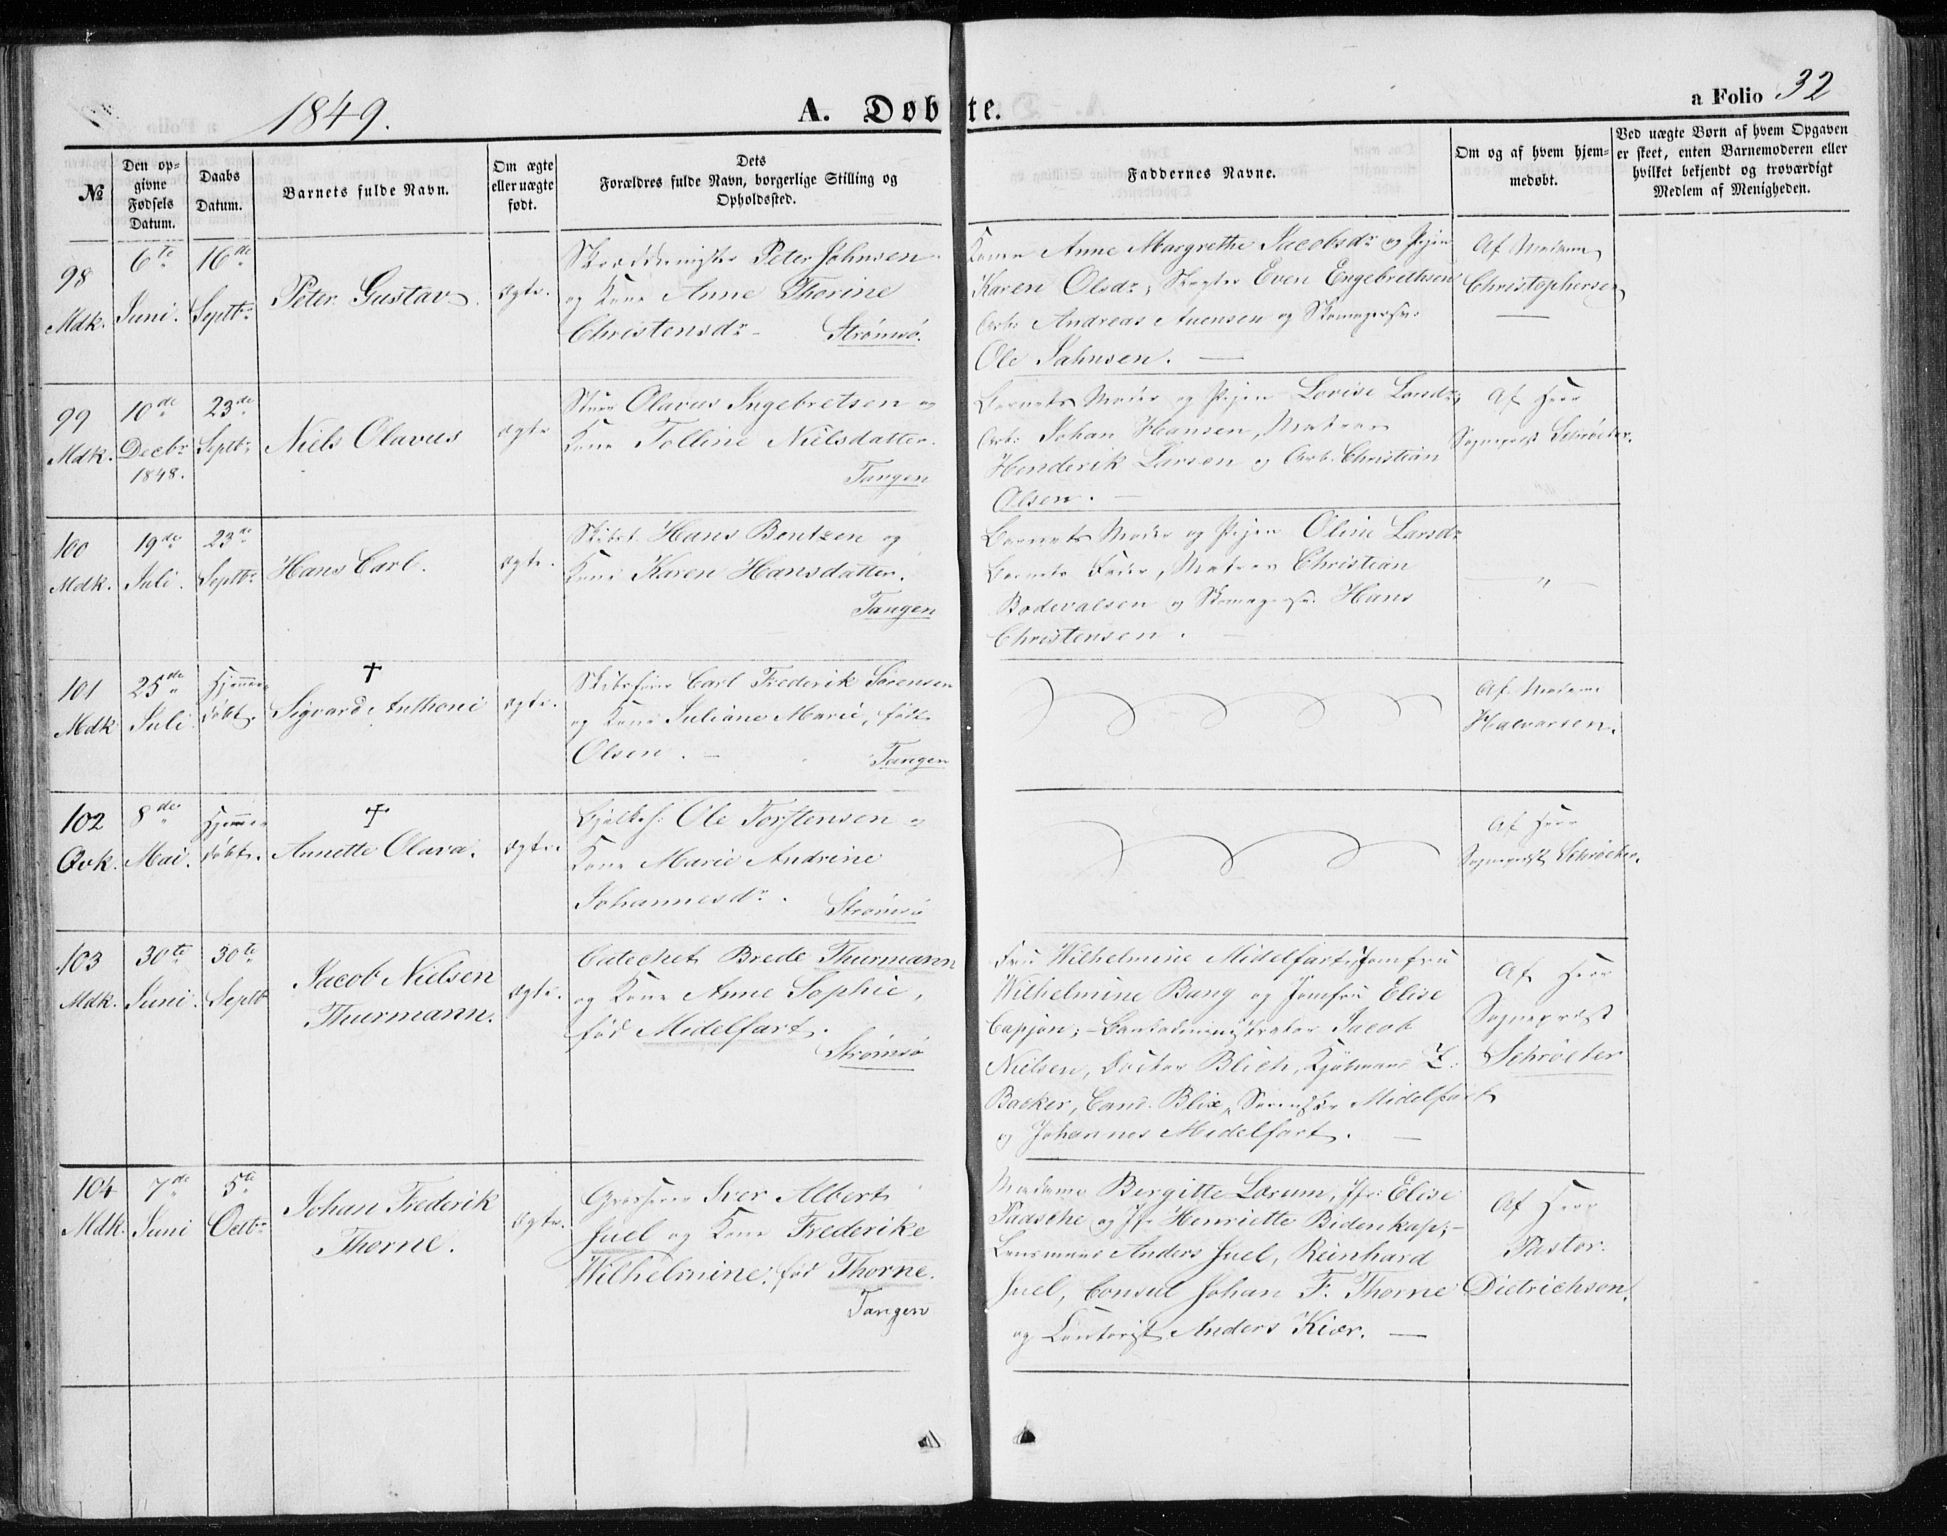 1849.
A. Døbte.
a Folio 32
№
Den opgivne Fødsels Datum.
Daabs Datum.
Barnets fulde Navn.
Om ægte eller uægte født.
Dets Forældres fulde Navn, borgerlige Stilling og Opholdssted.
Faddernes Navne.
Om og af hvem hjemmedøbt.
Ved uægte Børn af hvem Opgaven er skeet, enten Barnemoderen eller hvilket bekjendt og troværdigt Medlem af Menigheden.
98
Mdk.
6te
Juni.
16de
Septbr
Peter Gustav
ægte.
Peter Johnsen
og Kone Anne Thorine
Christensdr
Strømsø.
Kone Anne Margrethe Jacobsdr og Pigen
Karen Olsdr; Even Engebrethsen
Arb: Andreas Auensen og
Ole Jahnsen.
Af Madam
Christophersen
99
Mdk.
10de
Decbr
1848.
23de
Septbr
Niels Olavus
ægte
Olavus Ingebretsen og
Kone Tolline Nielsdatter.
Tangen
Barnets Moder og Pigen Lovise Larsdr;
Arb: Johan Hansen, Matros
Henderik Larsen og Arb. Christian
Olsen.
Af Herr
Sognepræst Schrøeter.
100
Mdk.
19de
Juli.
23de
Septbr
Hans Carl.
ægte.
Hans Bentzen og
Kone Karen Hansdatter.
Tangen
Barnets Moder og Pigen Oline Larsdr
Barnets Fader, Matros Christian
Bodevalsen og Hans
Christensen.
"
101
Mdk
25de
Juli
Hjemme
døbt.
†
Sigvard Anthoni
ægte.
Skibsfører Carl Frederik Sørensen
og Kone Juliane Marie, født
Olsen.
Tangen
Af Madame
Halvorsen.
102
Qvk.
8de
Mai.
Hjemme
døbt.
†
Annette Olava.
ægte.
Ole Torstensen og
Kone Marie Andrine
Johannesdr.
Strømsø
Af Herr
Sognepræst Schrøeter.
103
Mdk.
30te
Juni.
30te
Septb
Jacob Nielsen
Thurmann.
ægte.
Catechet Brede Thurmann
og Kone Anne Sophie,
fød Midelfart.
Strømsø
Fru Wilhelmine Midelfart; Jomfru
Wilhelmine Bang og Jomfru Elise
Capjon; Jacob
Nielsen, Doctor Blich, Kjøbmand
Backer, Cand. Blix, Midelfart
og Johannes Midelfart.
Af Herr
Sognepræst
Schrøeter
104
Mdk.
7de
Juni
5te
Octbr
Johan Frederik
Thorne.
ægte.
Grosserer Iver Albert
Juel og Kone Frederike
Wilhelmine, fød Thorne.
Tangen
Madame Bergitte Lorum, Jfr: Elise
Paasche og Jfr Henriette Bidenkap;
Lensmand Anders Juel, Reinhard
Juel, Consul Johan F. Thorne
og Contorist Anders Kiær.
Af Herr
Pastor.
Dietrichson.